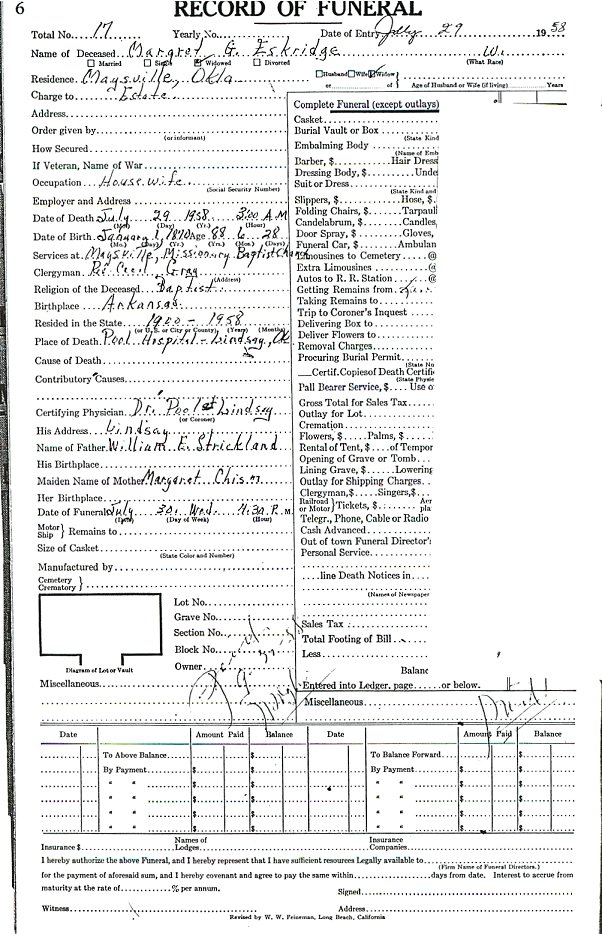 6
RECORD OF FUNERAL
Total No. 17 Yearly No. Date of Entry July 29 1958
Name of Deceased Margret G. Eskridge W.
Married Single Widowed Divorced (What Race)
Residence Maysville, Okla Husband Wife Widow
or of Age of Husband or Wife (if living) Years
Charge to Estate
Address
Order given by
(or informant)
How Secured
If Veteran, Name of War
Occupation Housewife
(Social Security Number)
Employer and Address
Date of Death July 29 1958 3:00 A.M
(Mo.) (Day) (Yr.) (Hour)
Date of Birth January 1, 1870 Age 88 6 28
(Mo.) (Day) (Yr.) (Yrs.) (Mos.) (Days)
Services at Maysville, Missionary Baptist Church
Clergyman Rev Cecil Gray
(Address)
Religion of the Deceased Baptist
Birthplace Arkansas
Resided in the State 1900 - 1958
(or U. S. or City or County) (Years) (Months)
Place of Death Pool Hospital - Lindsay, Ok
Cause of Death
Contributory Causes
Certifying Physician Dr. Pool at Lindsay
(or Coroner)
His Address Lindsay
Name of Father William E. Strickland
His Birthplace
Maiden Name of Mother Margaret Chism
Her Birthplace
Date of Funeral July 30 Wed. 4:30 P.M.
(Date) (Day of Week) (Hour)
Motor Ship } Remains to
Size of Casket
(State Color and Number)
Manufactured by
Cemetery Crematory }
Lot No.
Grave No.
Section No.
Block No.
Owner
Diagram of Lot or Vault
Miscellaneous
Complete Funeral (except outlays)
Casket
Burial Vault or Box
(State Kind
Embalming Body
(Name of Emb
Barber, $ Hair Dress
Dressing Body, $ Unde
Suit or Dress
(State Kind and
Slippers, $ Hose, $
Folding Chairs, $ Tarpauli
Candelabrum, $ Candles,
Door Spray, $ Gloves,
Funeral Car, $ Ambulan
Limousines to Cemetery @
Extra Limousines @
Autos to R. R. Station @
Getting Remains from
Taking Remains to
Trip to Coroner's Inquest
Delivering Box to
Deliver Flowers to
Removal Charges
Procuring Burial Permit
(State Nu
Certif. Copies of Death Certifi
(State Physic
Pall Bearer Service, $ Use o
Gross Total for Sales Tax
Outlay for Lot
Cremation
Flowers, $ Palms, $
Rental of Tent, $ of Tempor
Opening of Grave or Tomb
Lining Grave, $ Lowering
Outlay for Shipping Charges
Clergyman, $ Singers, $
Railroad or Motor } Tickets, $ Aer pla
Telegr., Phone, Cable or Radio
Cash Advanced
Out of town Funeral Director's
Personal Service
line Death Notices in
(Names of Newspaper
Sales Tax
Total Footing of Bill
Less
Balanc
Entered into Ledger, page or below.
Miscellaneous
Date Amount Paid Balance Date Amount Paid Balance
To Above Balance $ $ To Balance Forward $ $
By Payment $ $ By Payment $ $
" " $ $ " " $ $
" " $ $ " " $ $
" " $ $ " " $ $
" " $ $ " " $ $
Insurance $ Names of Lodges Insurance Companies
I hereby authorize the above Funeral, and I hereby represent that I have sufficient resources Legally available to
(Firm Name of Funeral Directors.)
for the payment of aforesaid sum, and I hereby covenant and agree to pay the same within days from date. Interest to accrue from
maturity at the rate of % per annum.
Signed
Witness Address
Revised by W. W. Feineman, Long Beach, California